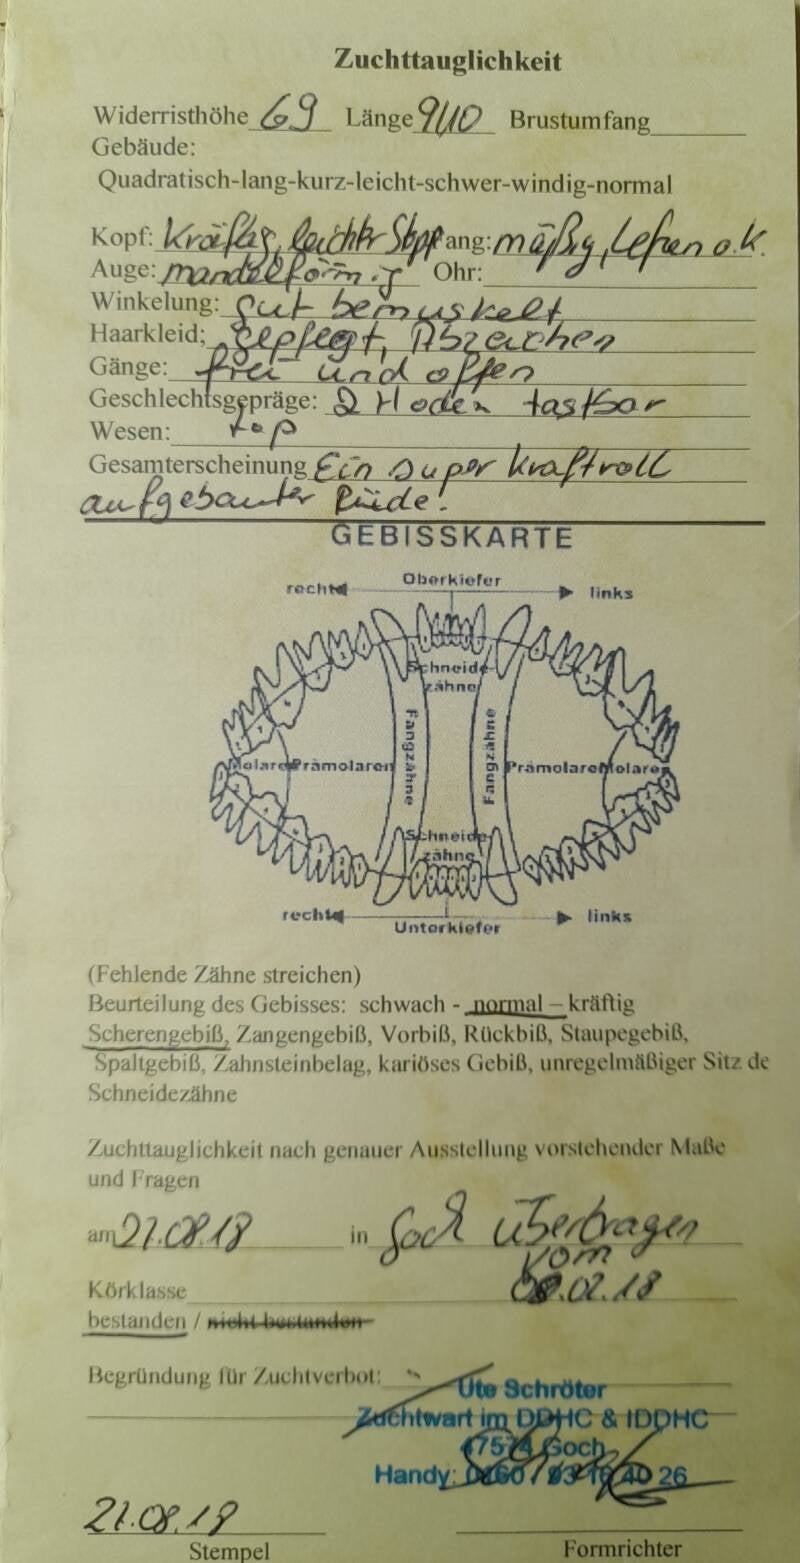 Zuchttauglichkeit
Widerristhöhe 69 Länge Brustumfang
Gebäude:
Quadratisch-lang-kurz-leicht-schwer-windig-normal
Kopf: Kräftig, leichter Stop Fang: mäßig, Lefzen o.k.
Auge: mandelförmig Ohr:
Winkelung: gut bemuskelt
Haarkleid: gepflegt, Abzeichen
Gänge: frei und offen
Geschlechtsgepräge: 2 Hoden tastbar
Wesen: top
Gesamterscheinung Ein super kraftvoll
aufgebauter Rüde!
GEBISSKARTE
rechts Oberkiefer links
Schneide-
zähne
Fangzähne Fangzähne
Molaren Prämolaren Prämolaren Molaren
Schneide-
zähne
rechts Unterkiefer links
(Fehlende Zähne streichen)
Beurteilung des Gebisses: schwach - normal – kräftig
Scherengebiß, Zangengebiß, Vorbiß, Rückbiß, Staupegebiß,
Spaltgebiß, Zahnsteinbelag, kariöses Gebiß, unregelmäßiger Sitz de
Schneidezähne
Zuchttauglichkeit nach genauer Ausstellung vorstehender Maße
und Fragen
am 21.08.18 in Goch übertragen
vom
Körklasse .02.18
bestanden / nicht bestanden
Begründung für Zuchtverbot:
Ute Schröter
Zuchtwart im DDHC & IDDHC
Goch
Handy: 26
21.08.18
Stempel Formrichter